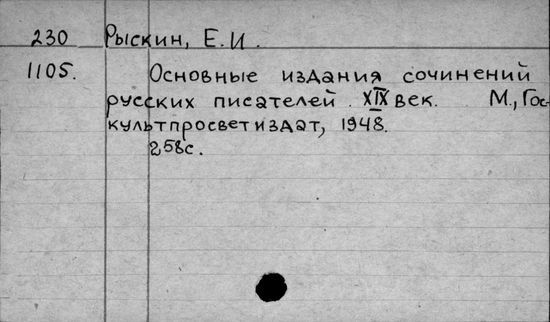 230 Рыскин, Е.И.
1105. Основные издания сочинений
русских писателей. XIX век. М., Гос-
культпросветиздат, 1948.
258с.